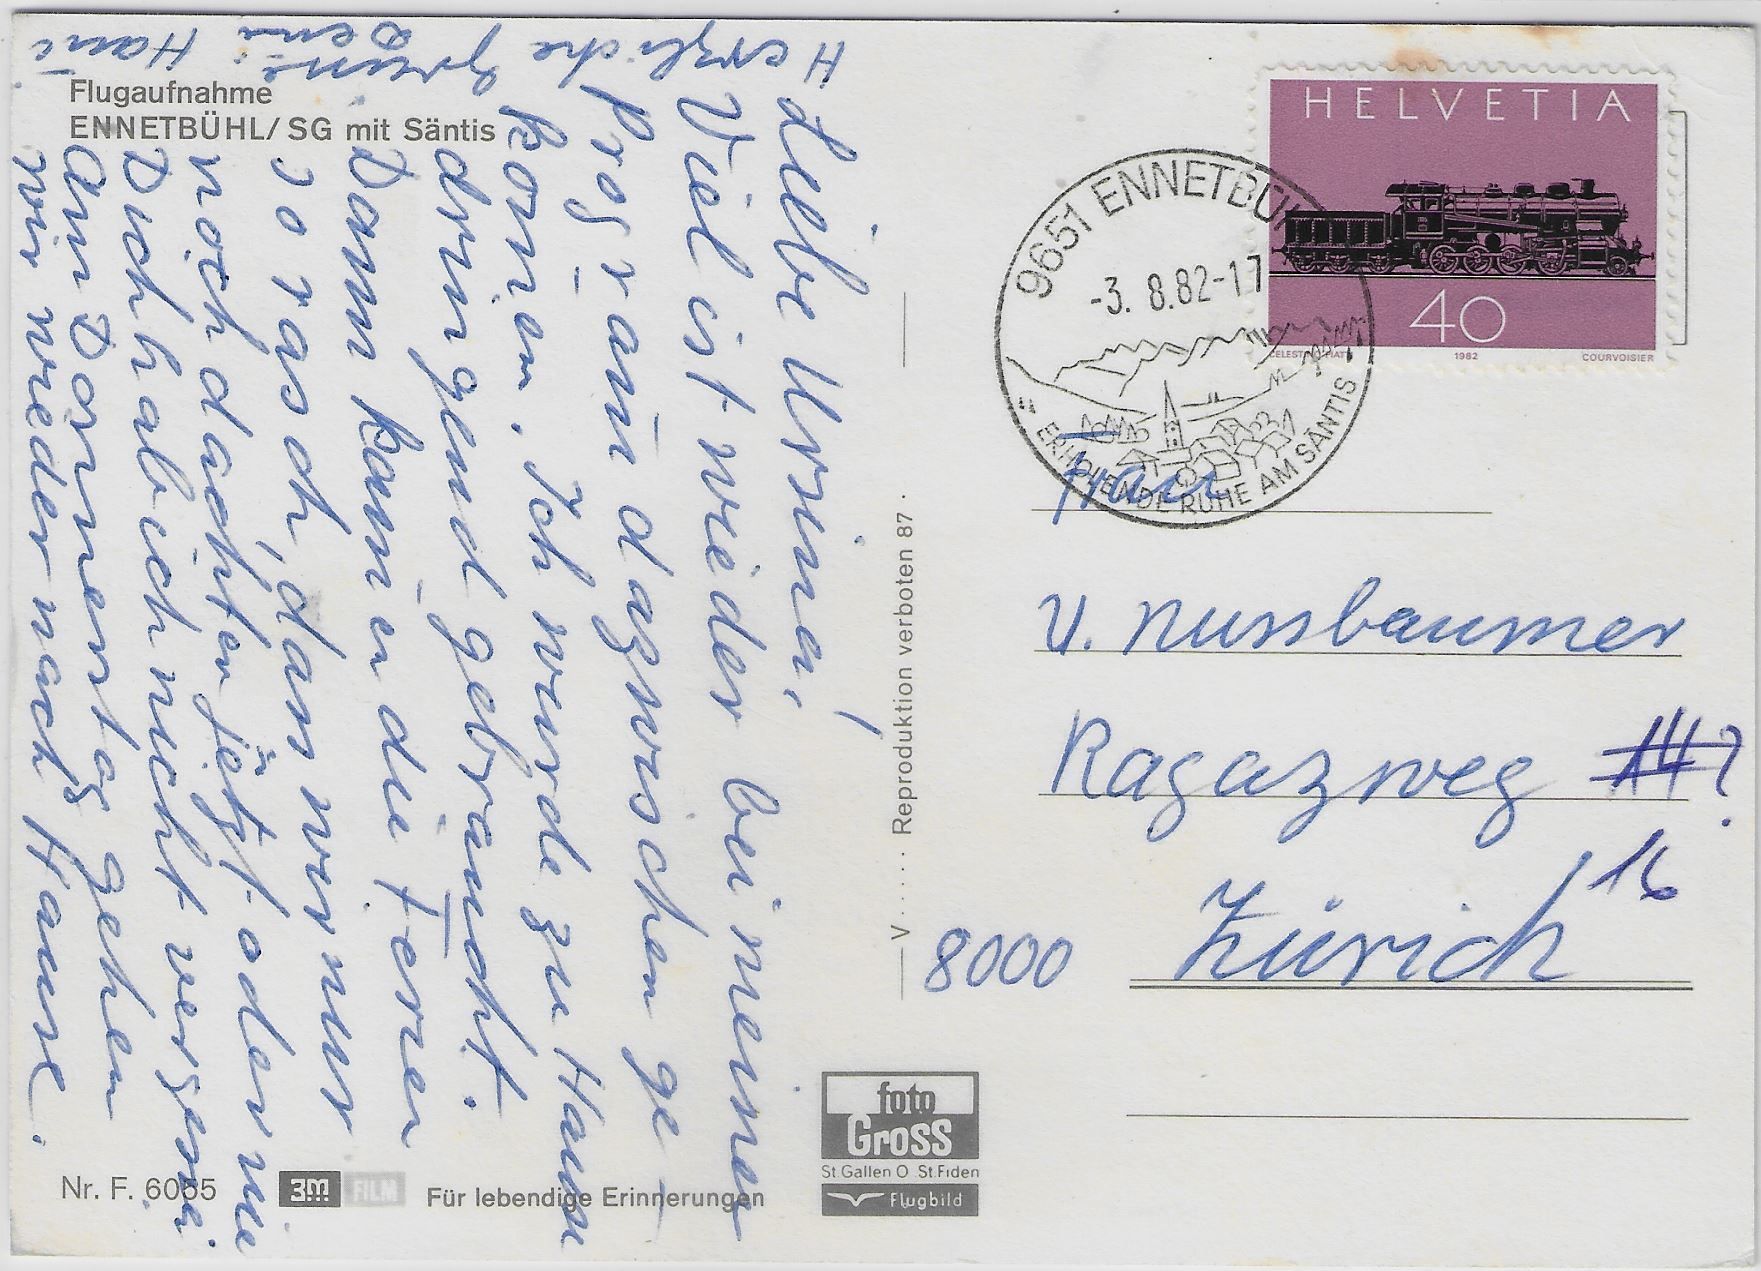 Flugaufnahme
ENNETBÜHL/SG mit Säntis
Liebe Ursina,
Viel ist wieder bei meinem
Program dazwischen ge-
komen. Ich wurde zu Hause
dringend gebraucht.
Dann kamen die Ferien
so rasch, dass wir nur
noch dachten jetzt oder nie
Dich hab ich nicht vergessen
Am Donnerstag gehen
wir wieder nach Hause.
Herzliche Grüsse
Deni
Nr. F. 6055
3M FILM
Für lebendige Erinnerungen
V..... Reproduktion verboten 87.
foto
Gross
St.Gallen O St.Fiden
Flugbild
HELVETIA
40
CELESTINO PIATTI 1982 COURVOISIER
9651 ENNETBÜHL
-3. 8.82-17
ERHOLENDE RUHE AM SÄNTIS
Frau
U. Nussbaumer
Ragazweg 14?
16
8000 Zürich